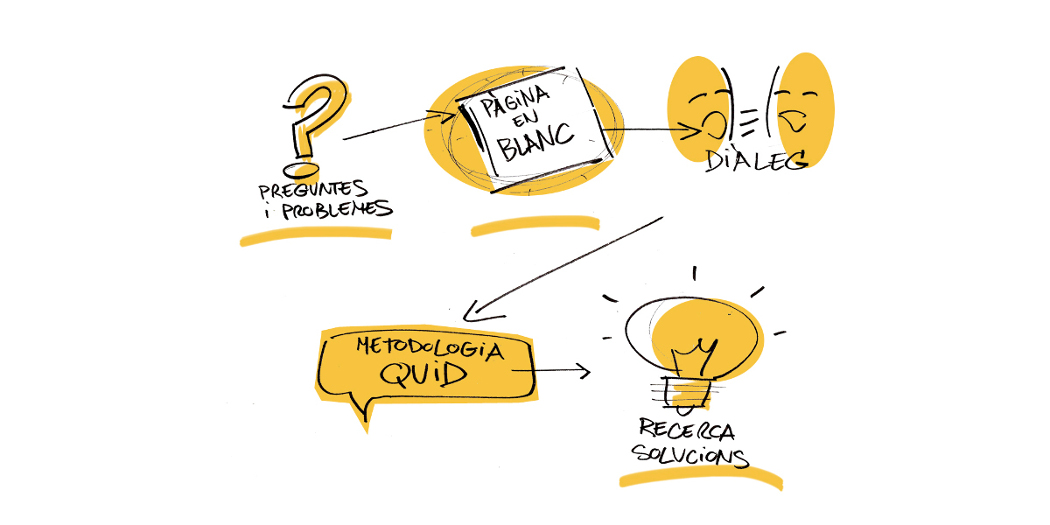 ?
PREGUNTES
i PROBLEMES
PÀGINA
EN
BLANC
DIÀLEG
METODOLOGIA
QUID
RECERCA
SOLUCIONS